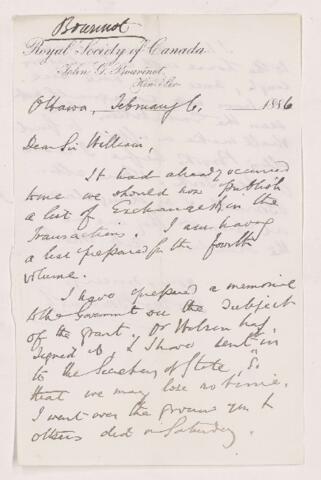 Bourinot
Royal Society of Canada
John G. Bourinot,
Hon. Sec
Ottawa, February 6, 1886
Dear Sir William,
It had already occurred
to me we should now publish
a list of Exchanges in the
Transactions. I am having
a list prepared for the fourth
volume.
I have prepared a memorial
to the Government on the subject
of the grant, Dr Wilson has
signed it, & I have sent in
to the Secretary of State, So
that we may lose no time.
I went over the ground you &
others did on Saturday.